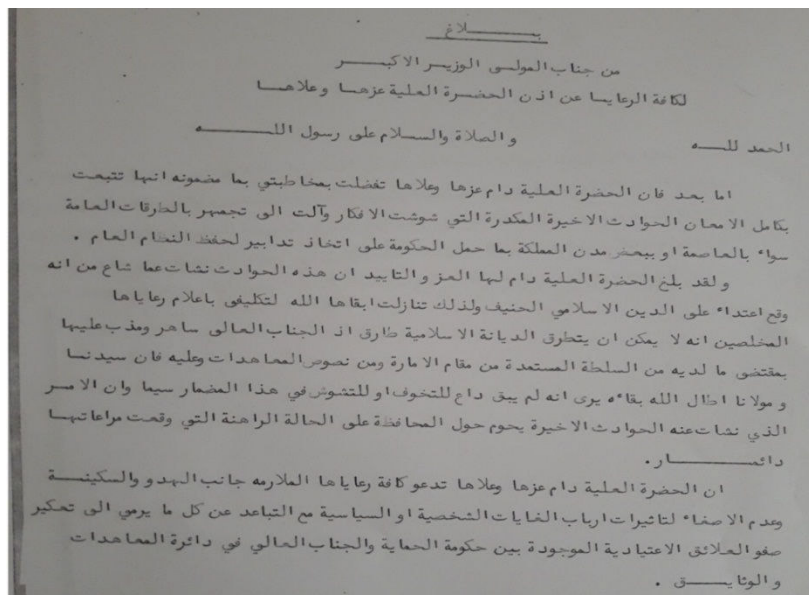 بـــــلاغ
من جناب المولى الوزير الاكبـــر
لكافة الرعايـا عن اذن الحضـرة العلية عزهـا وعلاهـا
الحمد للـــه و الصلاة والسـلام على رسول اللـــه
اما بعد فان الحضرة العلية دام عزها وعلاها تفضلت بمخاطبتي بما مضمونه انها تتبعت
بكامل الامعان الحوادث الاخيرة المكدرة التي شوشت الافكار وآلت الى تجمهر بالطرقات العامة
سواء بالعاصمة او ببعض مدن المملكة بما حمل الحكومة على اتخاذ تدابير لحفظ النظام العام .
و لقد بلغ الحضرة العلية دام لها العز و التاييد ان هذه الحوادث نشات عما شاع من انه
وقع اعتداء على الدين الاسلامي الحنيف ولذلك تنازلت ابقاها الله لتكليفى باعلام رعاياها
المخلصين انه لا يمكن ان يتطرق الديانة الاسلامية طارق اذ الجناب العالى ساهر ومذب عليها
بمقتضى ما لديه من السلطة المستمدة من مقام الامارة ومن نصوص المعاهدات وعليه فان سيدنـا
و مولانا اطال الله بقاءه يرى انه لم يبق داع للتخوف او للتشوش في هذا المضمار سيما وان الامـر
الذي نشات عنه الحوادث الاخيرة يحوم حول المحافظة على الحالة الراهنة التي وقعت مراعاتهـا
دائمـــــار.
ان الحضرة العلية دام عزها وعلاها تدعو كافة رعاياها الملازمه جانب الهدو والسكينـة
وعدم الاصغاء لتاثيرات ارباب الغايات الشخصية او السياسية مع التباعد عن كل ما يرمي الى تعكير
صفو العلائق الاعتيادية الموجودة بين حكومة الحماية والجناب العالي في دائرة المعاهدات
و الوثايـــق .